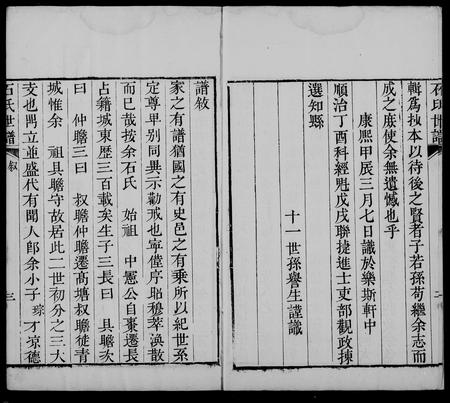 石氏世譜
二
輯為抄本以待後之賢者子若孫苟繼余志而
成之庶使余無遺憾也乎
康熙甲辰三月七日識於樂斯軒中
順治丁酉科經魁戊戌聯捷進士吏部觀政揀
選知縣
十一世孫譽生謹識
譜敘
家之有譜猶國之有史邑之有乘所以紀世系
定尊甲別同異示勸戒也寧僅序昭穆萃渙散
而已哉按余石氏 始祖 中憲公自棗遷長
占籍城東歷三百載矣生子三長曰 具瞻次
曰 仲瞻三曰 叔瞻仲瞻遷高塘叔瞻徙青
城惟余 祖具瞻守故居此二世初分之三大
支也門立並盛代有聞人郎余小子琮才凉德
石氏世譜 敘 三